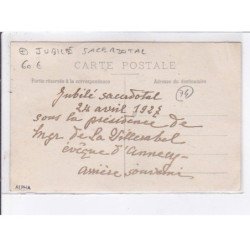 JUBILÉ SACERDOTAL
60 €
CARTE POSTALE
Partie réservée à la correspondance
Adresse du destinataire
74
Jubilé sacerdotal
24 avril 1927
sous la présidence de
Mgr. de La Villerabel
évêque d'Annecy
arrière
ALPHA